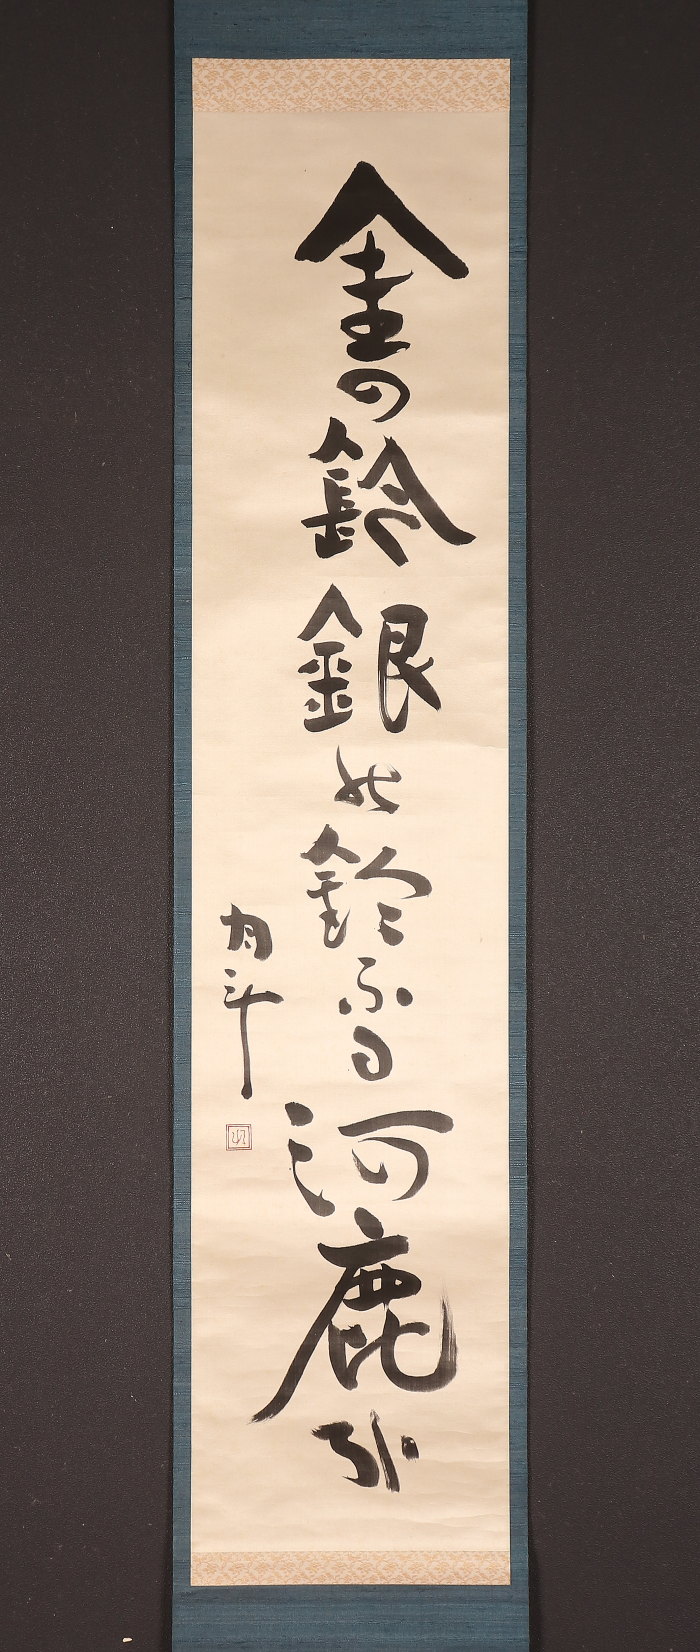 金の鈴銀の鈴ふる河鹿哉
月斗